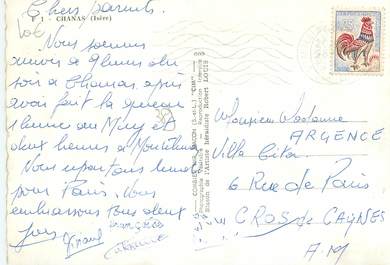 Chers parents.
P 1 - CHANAS (Isère)
Nous sommes
arrivés à 9 heures du
soir à Chanas après
avoir fait la queue
1 heure au Muy et
deux heures à Montélimar
Nous repartons
pour Paris. Nous
embrassons tous deux
François
COMBIER IMP. MACON (S.-&-L.) "CIM"
Photographie Véritable - Reproduction Interdite
Maison de l'Artiste Héraldiste Robert LOUIS
Monsieur Madame
ARGENCE
Villa Cita
6 Rue de Paris
CROS de CAGNES
A M